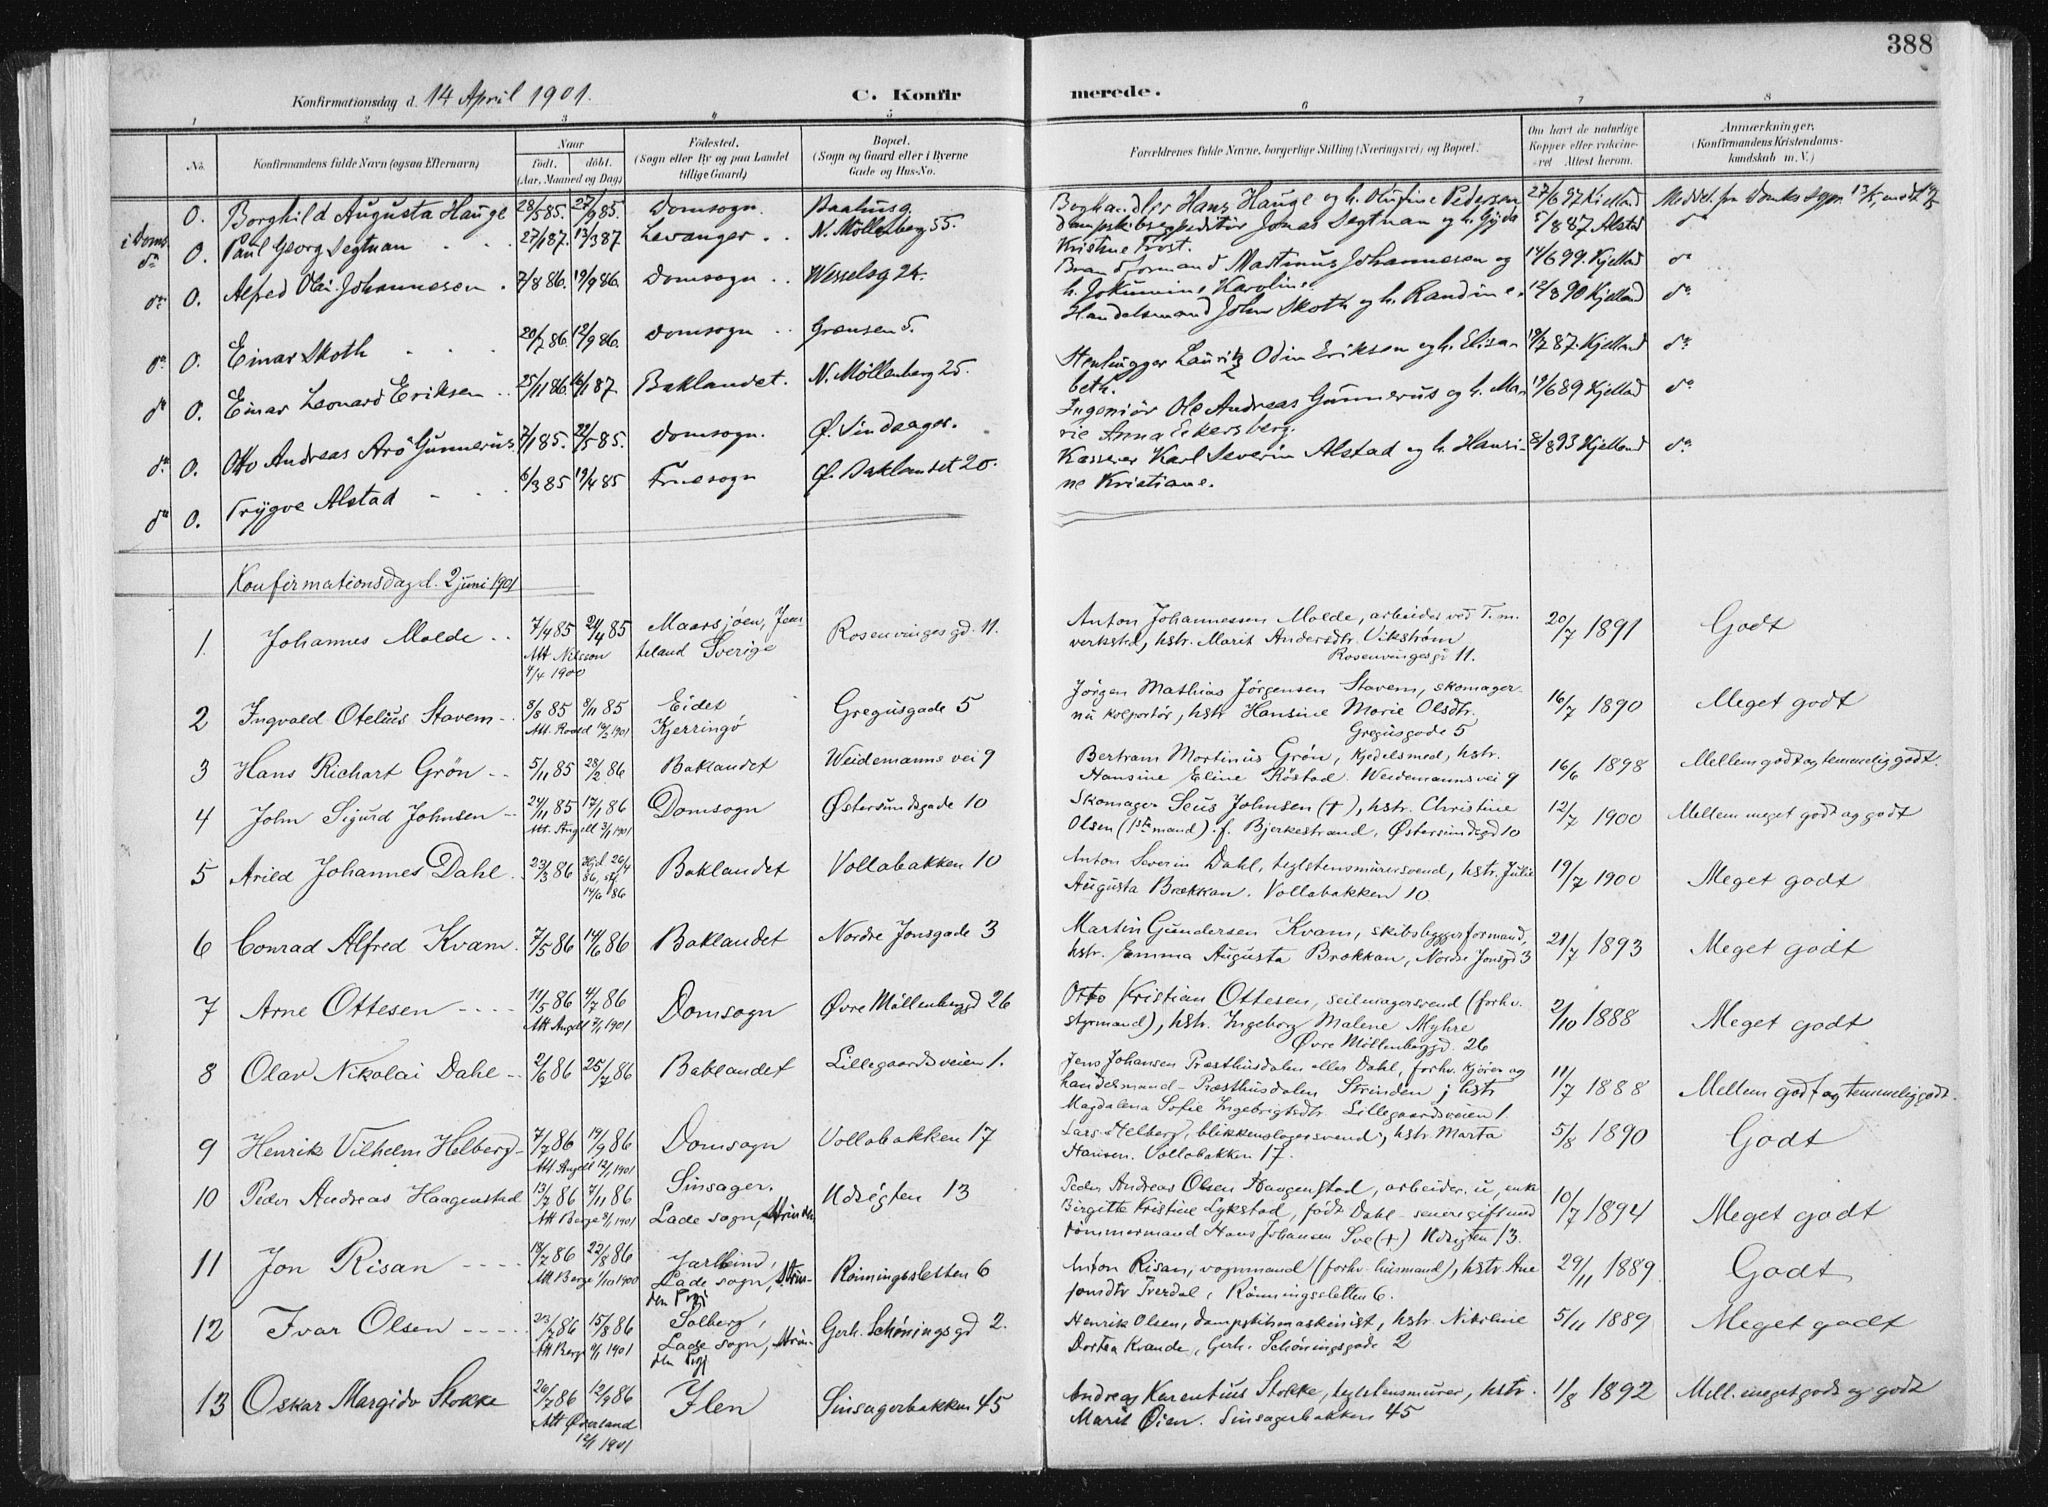 388
Konfirmationsdag d. 14 April 1901.
C. Konfir
merede.
1 2 3 4 5 6 7 8
No.
Konfirmandens fulde Navn (ogsaa Efternavn)
Naar
født. døbt.
(Aar, Maaned og Dag)
Fødested.
(Sogn eller By og paa Landet
tillige Gaard)
Bopæl.
(Sogn og Gaard eller i Byerne
Gade og Hus-No.
Forældrenes fulde Navne, borgerlige Stilling (Næringsvei) og Bopæl.
Om havt de naturlige
Kopper eller vakcine-
ret Attest herom.
Anmærkninger.
(Konfirmandens Kristendoms-
kundskab m. V.)
i Doms. O. Borghild Augusta Hauge 28/5 85. 27/9 85. Domsogn. Baahusg.
Boghandler Hans Hauge og h. Olufine Pedersen 27/6 97 Kjelland
do O. Paul Georg Segtnan 27/1 87. 13/3 87 Levanger N. Möllenberg 55.
Dampskibsexpeditör Jonas Segtnan og h. Gjda 5/8 87 Alstad do
Kristine Frost.
do O. Alfred Olai Johannesen 7/8 86. 19/9 86. Domsogn Wesselsg 24.
Brandformand Martinus Johannesen og 14/6 99. Kjelland do
h. Jokumine Karoline.
do O. Einar Skoth 20/7 86. 12/9 86. Domsogn Grænsen 5.
Handelsmand John Skoth og h. Randine. 12/8 90 Kjelland do
do O. Einar Leonard Eriksen 25/11 86. 16/1 87. Baklandet. N. Möllenberg 25.
Stenhugger Lauritz Odin Eriksen og h. Elisa- 19/7 87. Kjelland do
beth.
do O. Otto Andreas Arö Gunnerus 7/1 85. 22/5 85. Domsogn. Ø. Sindsager.
Ingeniör Ole Andreas Gunnerus og h. Ma- 19/6 89 Kjelland do
rie Anna Eckersberg.
do O. Trygve Alstad 6/3 85 19/4 85 Fruesogn Ø. Baklandet 20.
Kasserer Karl Severin Alstad og h. Hansi- 8/8 93 Kjelland do
ne Kristiane.
Konfirmationsdag d. 2 juni 1901
1 Johannes Molde 7/4 85 24/4 85 Maarsjöen, Jem- Rosenvinges gd. 11.
Att Nilsson teland Sverige
9/4 1900
Anton Johannessen Molde, arbeider ved T. m. 20/7 1891 Godt
verksted, hstr. Marit Andersdtr. Vikström
Rosenvingesgd 11.
2 Ingvald Otelius Stavem 8/8 85 8/11 85 Eidet Gregusgade 5
Att. Roald 10/3 1901 Kjerringö
Jörgen Mathias Jörgensen Stavem, skomager 16/7 1890 Meget godt
nu kolportör, hstr Hansine Marie Olsdtr.
Gregusgade 5
3 Hans Richart Grön 5/11 85 28/2 86 Baklandet Weidemanns vei 9
Bertram Mortinus Grön, Kjedelsmed, hstr. 16/6 1898 Mellem godt og temmelig godt.
Hansine Eline Röstad. Weidemannsvei 9
4 John Sigurd Johnsen 24/11 85 17/1 86 Domsogn Østersundsgade 10
Att. Angell 3/1 1901
Skomager Seus Johnsen (+), hstr. Christine 12/7 1900 Mellem meget godt og godt
Olsen (1ste mand) f. Bjerkestrand, Østersundsgd 10
5 Arild Johannes Dahl. 23/3 86 Hjd 26/4 86, stf 14/6 86 Baklandet Vollabakken 10
Anton Severin Dahl, teglstensmurersvend, hstr. Julie 19/7 1900 Meget godt
Augusta Brækkan. Vollabakken 10
6 Conrad Alfred Kvam. 7/5 86 14/6 86 Baklandet Nordre Jonsgade 3
Martin Gundersen Kvam, skibsbyggerformand, 21/7 1893 Meget godt
hstr. Emma Augusta Brækkan, Nordre Jonsgd 3
7 Arne Ottesen 11/5 86 4/7 86 Domsogn Øvre Möllenbergd 26
Att Angell 7/1 1901
Otto Kristian Ottesen, seilmagersvend (forhv. 2/10 1888 Meget godt
styrmand), hstr. Ingeborg Malene Myhre
Øvre Möllenbergd. 26
8 Olav Nikolai Dahl 2/6 86 25/7 86 Baklandet Lillegaardsveien 1.
Jens Johansen Præsthusdalen eller Dahl, forhv. kjörer og 11/7 1888 Mellem godt og temmelig godt.
handelsmand - Præsthusdalen Strinden; hstr
Magdalena Sofie Ingebrigtsdtr. Lillegaardsveien 1.
9 Henrik Vilhelm Helberg 7/7 86 19/9 86 Domsogn Vollabakken 17
Att Angell 12/1 1901
Lars Helberg, blikkenslagersvend, hstr. Marta 5/8 1890 Godt
Hansen. Vollabakken 17.
10 Peder Andreas Haagenstad 13/7 86 7/11 86 Sinsager. Udsigten 13
Att Berge 8/1 1901 Lade sogn, Strinden
Peder Andreas Olsen Haagenstad, arbeider. u, enke 10/7 1894 Meget godt
Birgitte Kristine Lykstad, födt Dahl - senere gift med
tömmermand Hans Johansen Sve (+) Udsigten 13.
11 Jon Risan 18/7 86 22/8 86 Jarleind, Rönningsletten 6
Att Berge 1/10 1900 Lade sogn, Strin-
den Pgj
Anton Risan, vognmand (forhv. husmand), hstr. Ane 29/11 1889. Godt
Jonsdtr Iverdal, Rönningsletten 6.
12 Ivar Olsen 23/7 86 15/8 86 Solberg, Gerh. Schönings gd 2.
Att Berge 9/1 1901 Lade sogn, Strin-
den Pgj
Henrik Olsen, dampskibsmaskinist, hstr. Nikoline 5/11 1889 Meget godt
Dortea Kvande, Gerh. Schöningsgade 2
13 Oskar Margido Stokke 26/7 86 12/9 86 Ilen Sinsagerbakken 45
Att Øverland
12/1 1901
Andreas Karentius Stokke, teglstensmurer, hstr. 11/8 1892 Mell. meget godt og godt
Marit Øien. Sinsagerbakken 45